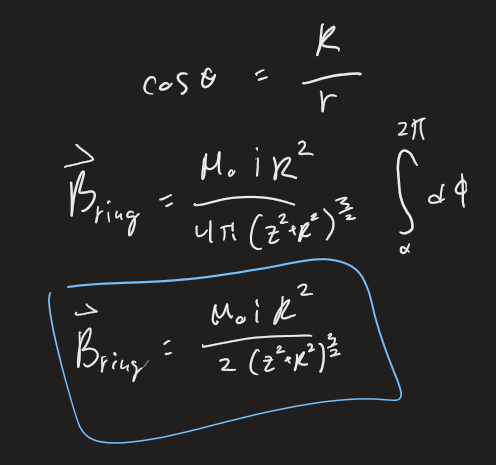 cos θ = R/r
B⃗_ring = μ₀ i R² / 4π (z²+R²)^(3/2) ∫_α^2π dϕ
B⃗_ring = μ₀ i R² / 2 (z²+R²)^(3/2)